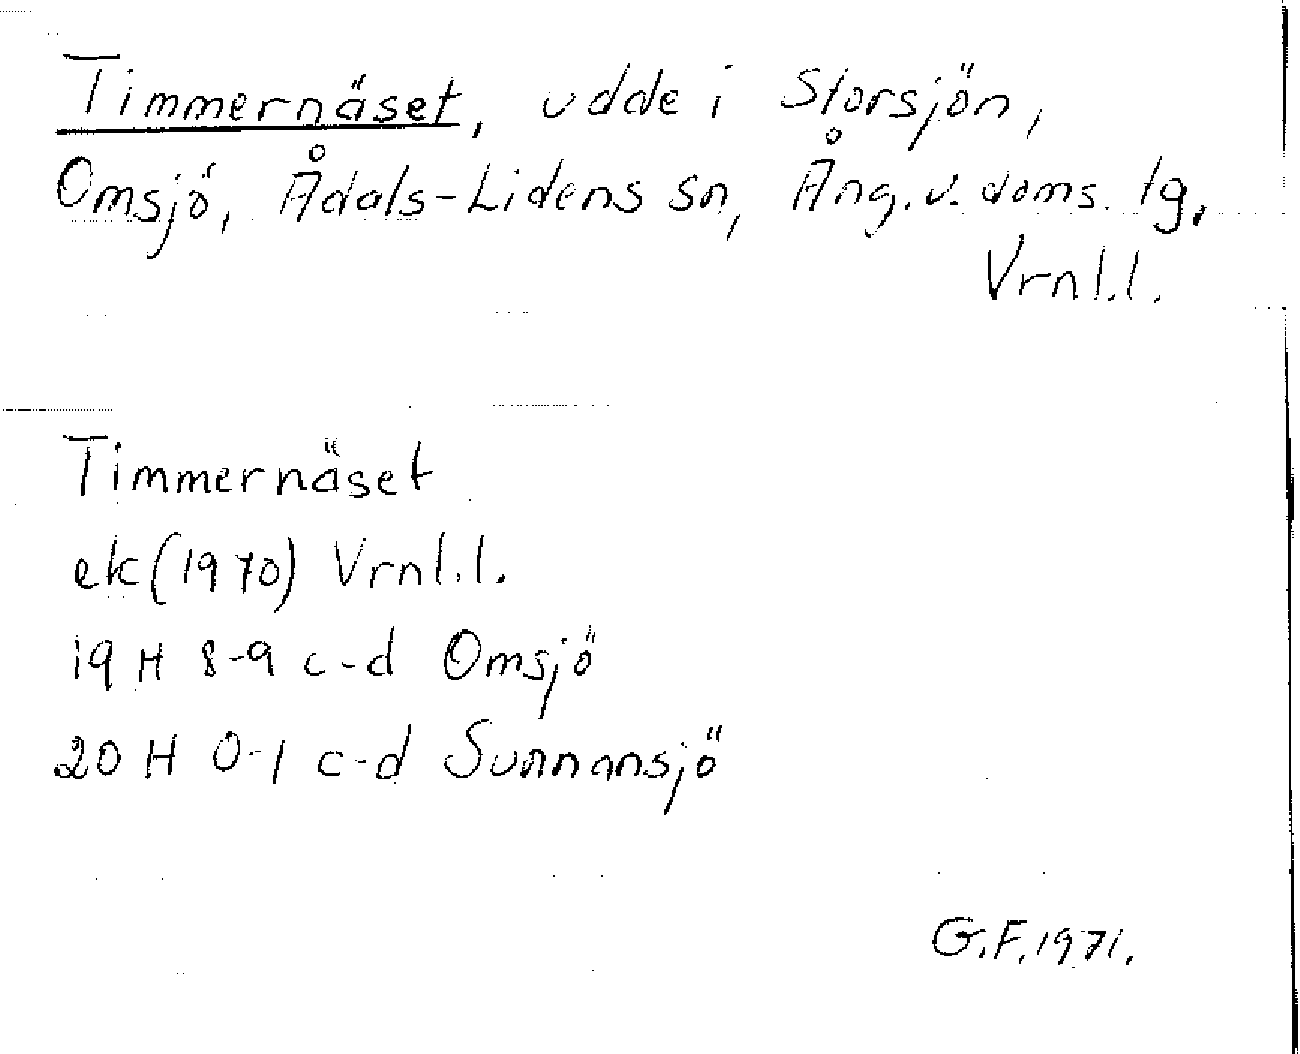 Timmernäset, udde i Storsjön,
Omsjö, Ådals-Lidens sn, Ång. v. doms. lg,
Vrnl.l.
Timmernäset
ek (1970) Vrnl.l.
19 H 8-9 c-d Omsjö
20 H 0-1 c-d Sunnansjö
G.F. 1971.